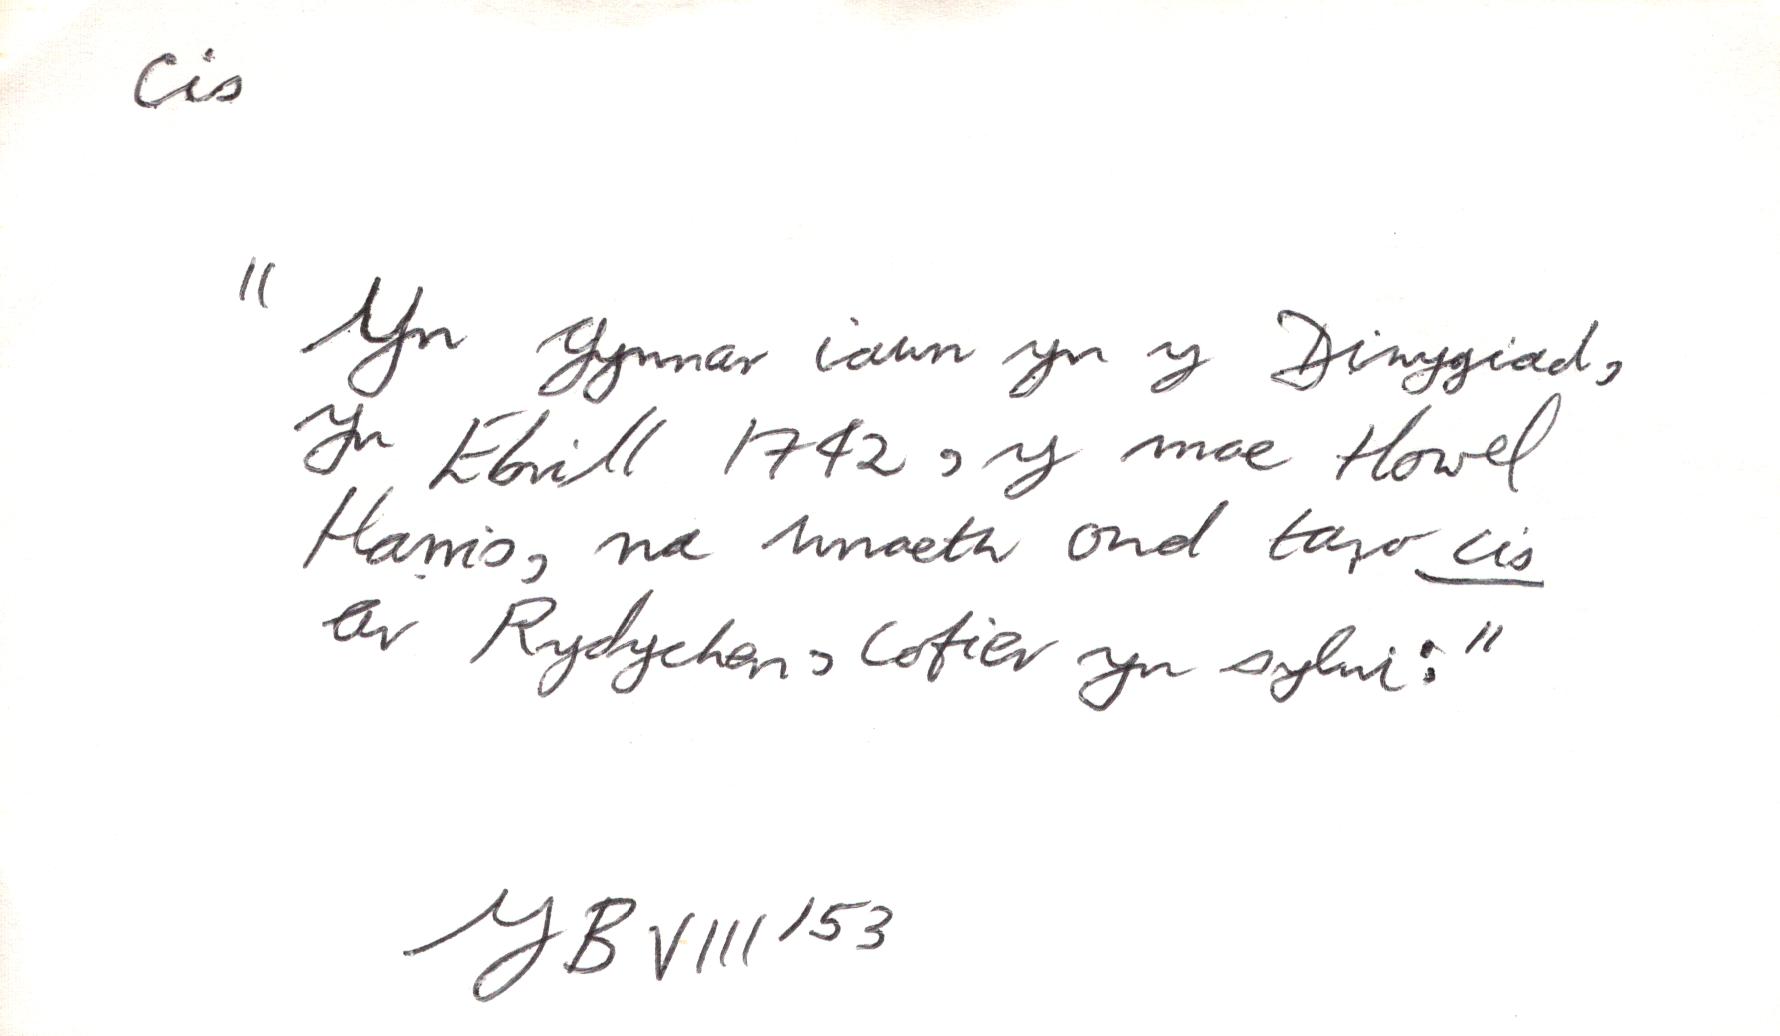 Cis
"Yn gynnar iawn yn y Diwygiad,
yn Ebrill 1742, y mae Howel
Harris, na wnaeth ond taro cis
ar Rydychen, cofier yn sylwi:"
YB VIII 153